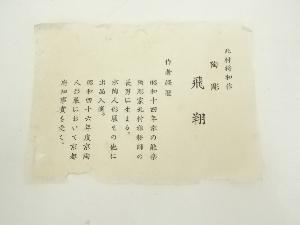 北村裕和作
陶彫
飛翔
作者経歴
昭和十四年京の能楽
陶彫家北村 師の
長男に生まる。
京陶人形展その他に
出品入選。
昭和四十六年度京陶
人形展において京都
府知事賞を受く。